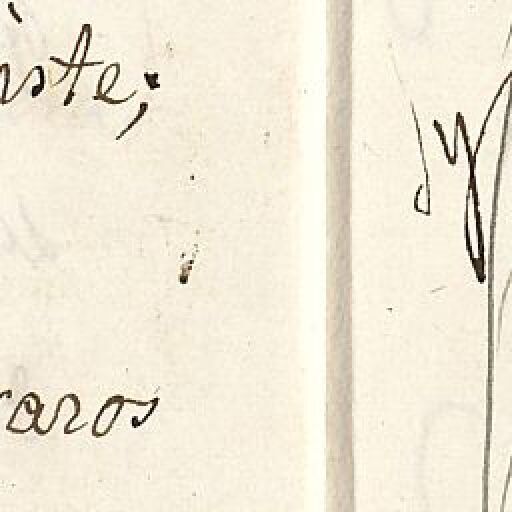 iste;
raros
y